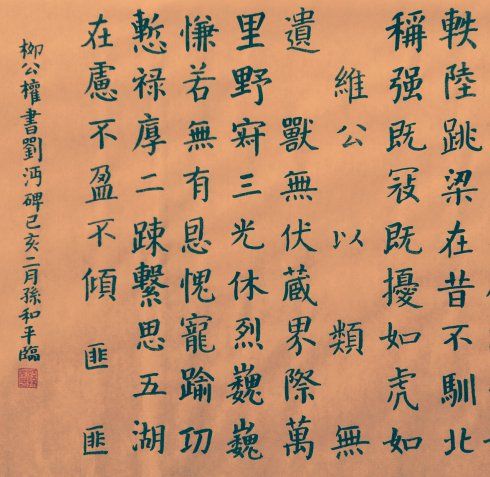 軼陸跳梁在昔不馴北
稱强既冦既擾如虎如
維公以類無
遺獸無伏蔵界際萬
里野三光休烈巍巍
慊若無有恩愧寵踰功
慙禄厚二踈繫思五湖
在慮不盈不傾匪匪
柳公權書劉沔碑己亥二月孫和平臨